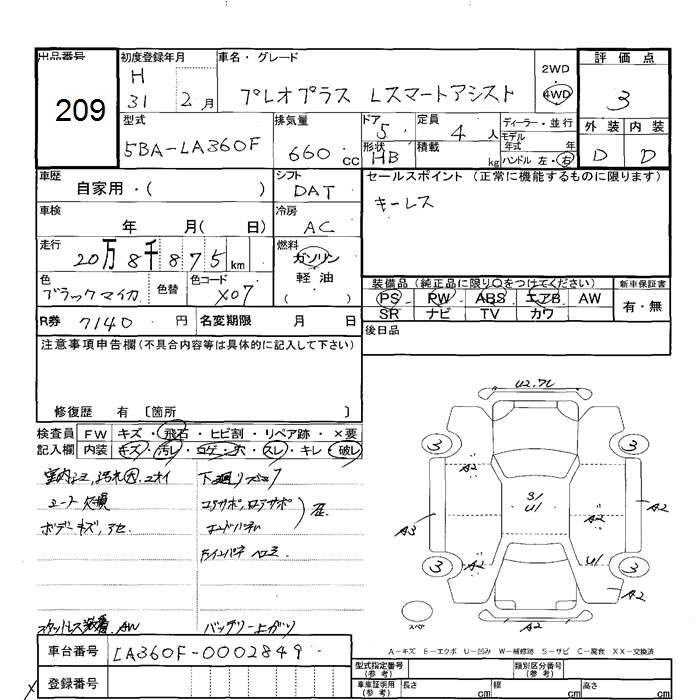 出品番号
209
初度登録年月
H
31 2月
車名・グレード
プレオプラス Lスマートアシスト
2WD
4WD
評価点
3
型式
5BA-LA360F
排気量
660 cc
ドア
5
定員
4人
ディーラー・並行
モデル
年式 年
外装 内装
形状
HB
積載
kg
ハンドル 左・右
D D
車歴
自家用・( )
シフト
DAT
セールスポイント (正常に機能するものに限ります)
キーレス
車検
年 月( 日)
冷房
AC
走行
20万8千875km
燃料
ガソリン
軽油
( )
色
ブラックマイカ
色替
色コード
X07
装備品(純正品に限り○をつけてください)
新車保証書
PS PW ABS エアB AW
SR ナビ TV カワ
有・無
R券 7140円
名変期限 月 日
後日品
注意事項申告欄(不具合内容等は具体的に記入して下さい)
修復歴 有 〔箇所 〕
検査員
記入欄
FW キズ・飛石・ヒビ割・リペア跡・×要
内装 キズ・汚レ・コゲ・穴・スレ・キレ・破レ
シート欠損
ボデーキズ,アセ
下廻り
コアサポ,ロアサポ
AW
バッテリー上がり
U2.7L
3 3
A2 A2
S/
U/
A3 A2 A2
3 U/ 3
A2 A2
スペア
A2
車台番号 LA360F-0002849
登録番号
A-キズ E-エクボ U-凹み W-補修跡 S-サビ C-腐食 XX-交換済
型式指定番号
(参考)
類別区分番号
(参考)
車庫証明用
(参考)
長さ cm 幅 cm 高さ cm